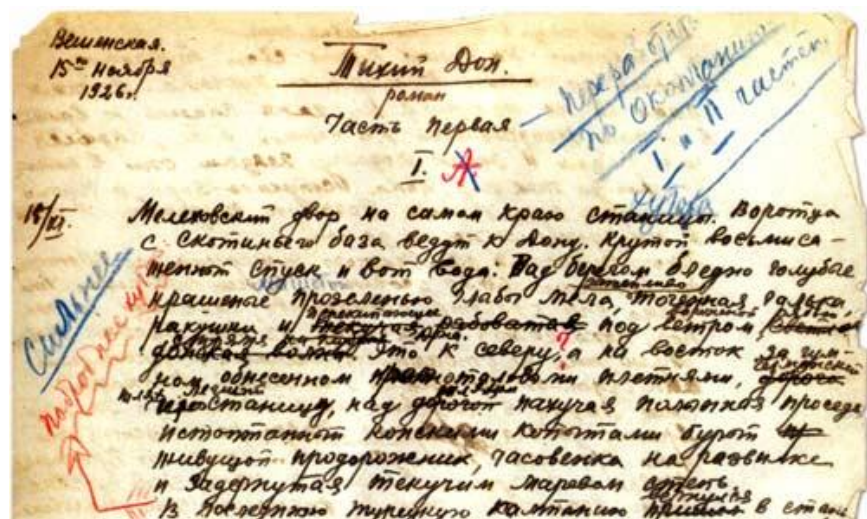 Вешенская.
15го ноября
1926г.
Тихий Дон.
роман
Часть первая
I.
— перераб.
по окончании
I и II частей.
хутора
15/XI.
Мелеховский двор на самом краю станицы. Воротца
с скотиньего база ведут к Дону. Крутой восьмиса-
женный спуск и вот вода: Над берегом бледно голубые
крашеные прозеленью глыбы мела,
ракушки и под ветром,
донская Это к северу, а на восток за гум-
ном обнесенном плетнями,
станицу, над пахучая полынная проседь
истоптанный конскими копытами бурый
живущой придорожник, часовенка на развилке
и задернутая текучим маревом степь.
В последнюю турецкую кампанию в стан
Сильнее
подробнее